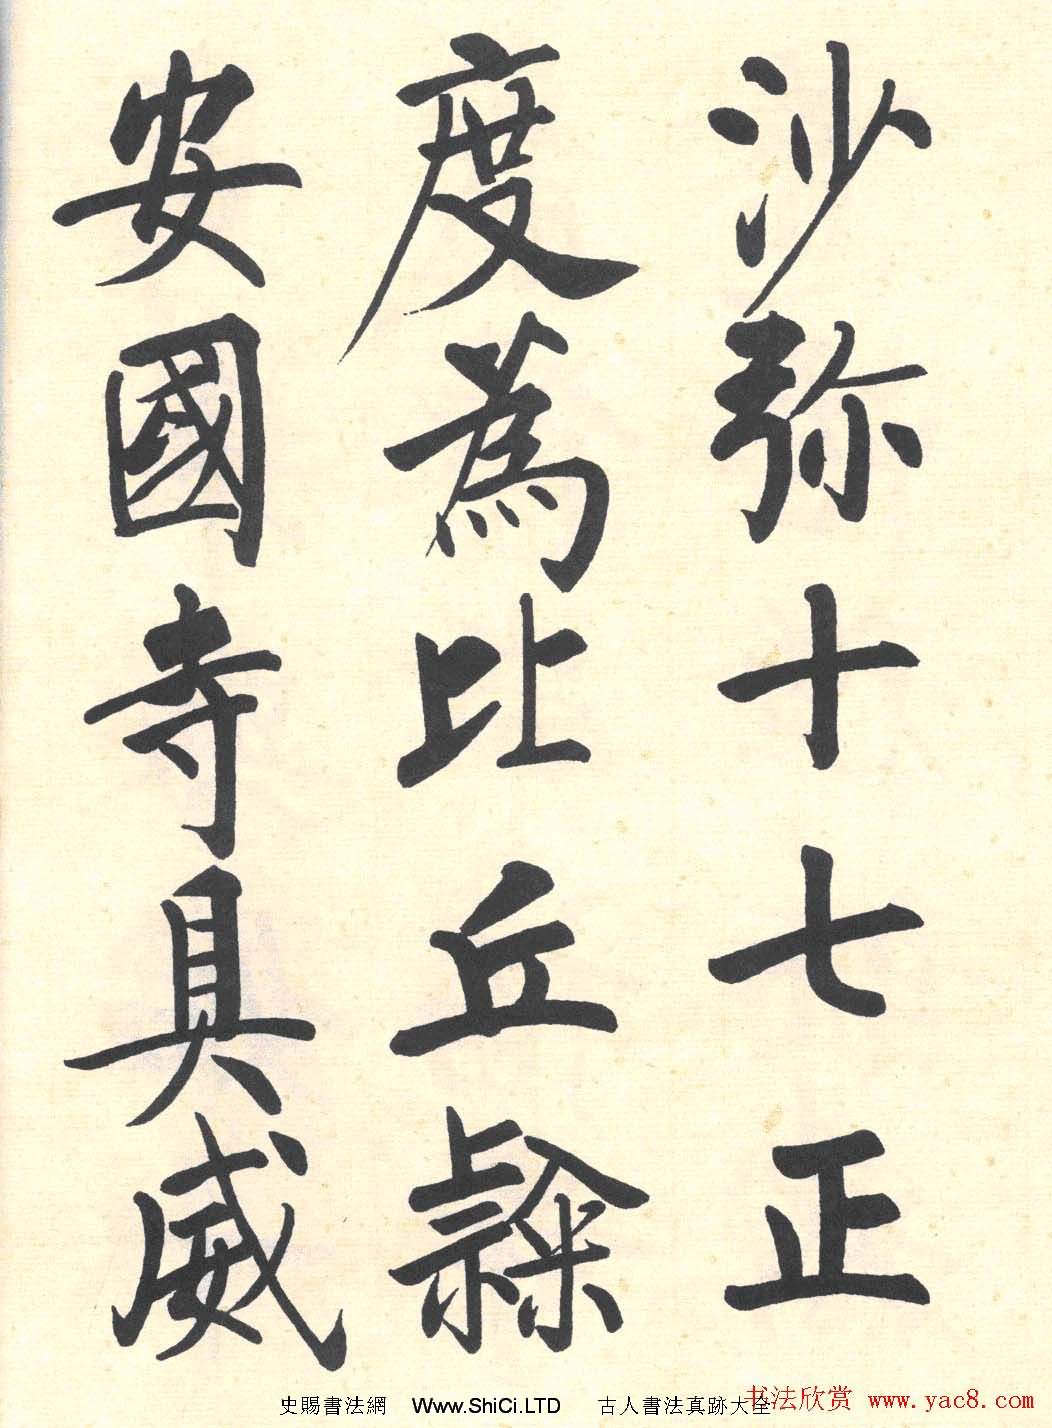 沙弥十七正
度為比丘隸
安國寺具威
史賜書法網 Www.ShiCi.LTD 古人書法真跡大全
书法欣赏 www.yac8.com